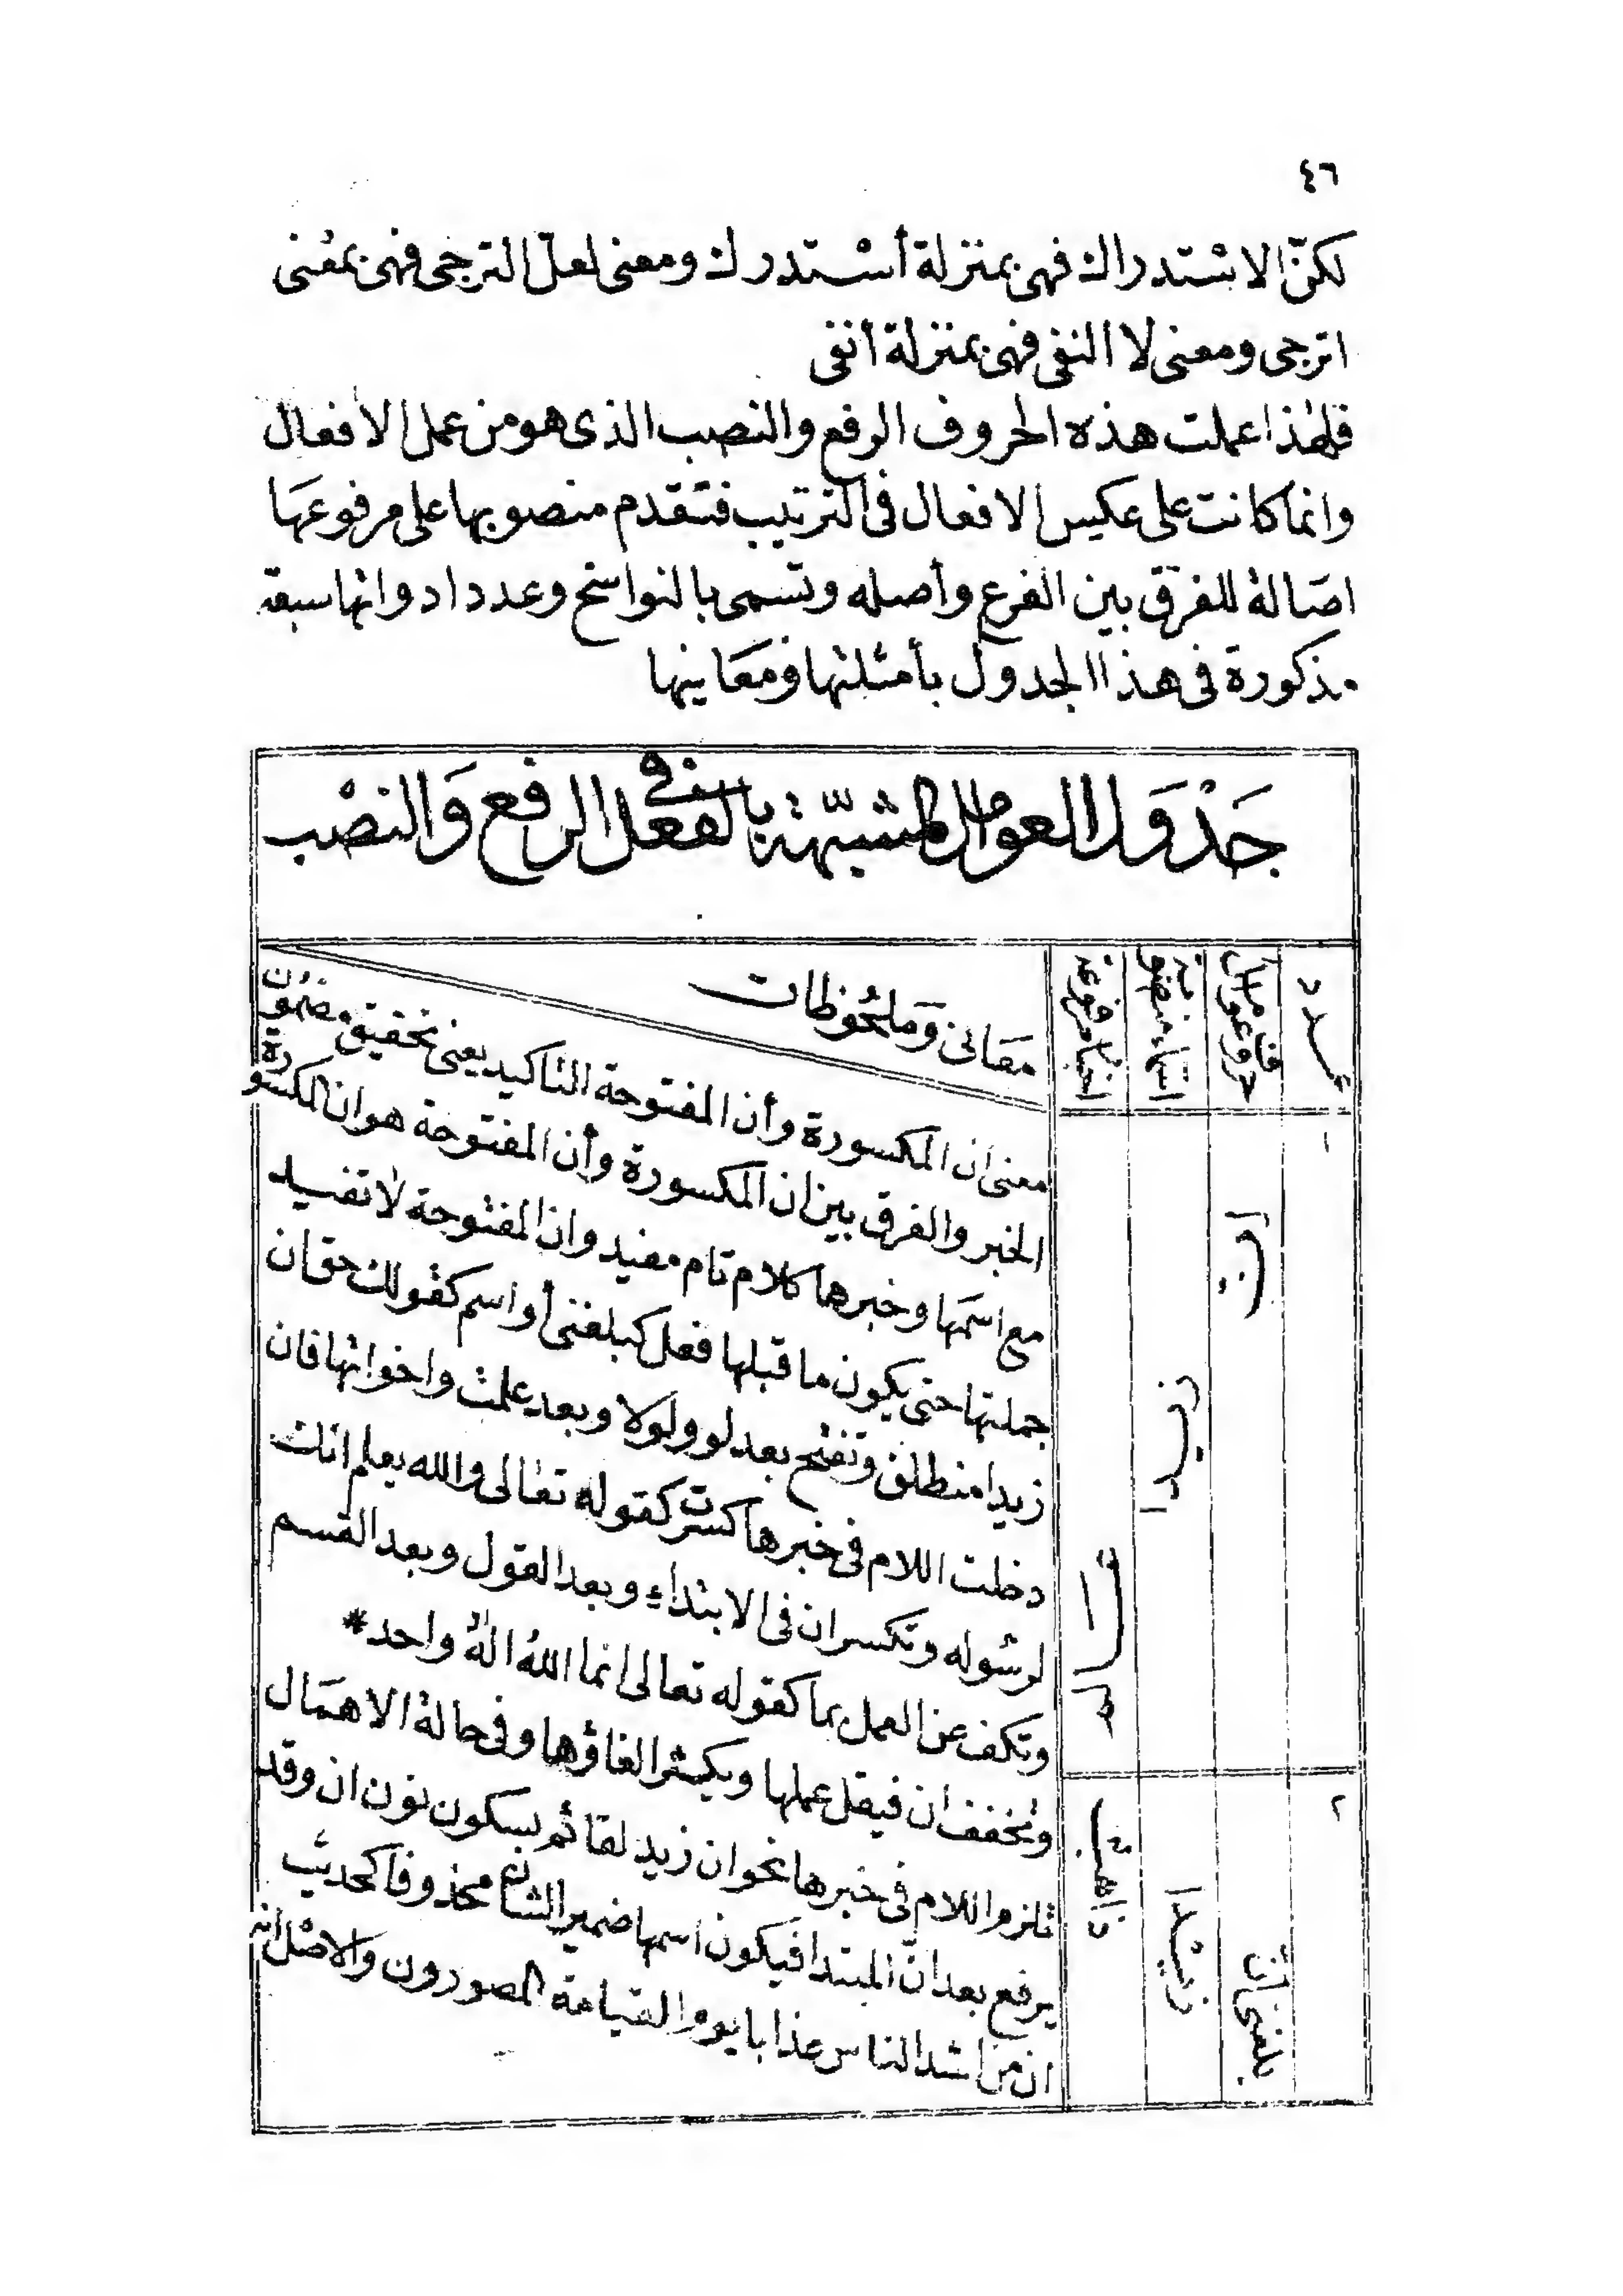 ٤٦
لكنّ الاستدراك فهى بمنزلة أستدرك ومعنى لعلّ الترجى فهى بمعنى
اترجى ومعنى لا النفى فهى بمنزلة أنفى
فلهٰذا عملت هذه الحروف الرفع والنصب الذى هو من عمل الافعال
وانما كانت على عكس الافعال فى الترتيب فتقدم منصوبها على مرفوعها
اصالة للفرق بين الفرع وأصله وتسمى بالنواسخ وعدد ادواتها سبعة
مذكورة فى هذا الجدول بأمثلتها ومعانيها
جَدْوَل العوامل المشبّهة بالفعل فى الرفع وَالنصْب
عدد
حروف عوامل
اسماء منصوبة
اخبار مرفوعة
معَانى وَملحُوظات
١
انّ
زيدا
٢
بلغنى انّ
زيْدا
ذاهبٌ
معنى ان المكسورة وأن المفتوحة التاكيد يعنى تحقيق مضمون
الخبر والفرق بين ان المكسورة وأن المفتوحة هو ان المكسورة
مع اسمَها وخبرها كلام تام مفيد وان المفتوحة لا تفيد
جملتها حتى يكون ما قبلها فعل كبلغنى أو اسم كقولك حق ان
زيدا منطلق وتفتح بعد لو ولولا وبعد علمت واخواتها فان
دخلت اللام فى خبرها كسرت كقوله تعالى والله يعلم انك
لرسوله وتكسر ان فى الابتداء وبعد القول وبعد القسم
وتكف عن العمل بما كقوله تعالى انما اللهُ الهٌ واحد*
وتخفف ان فيقل عملها ويكثر الغاؤها وفى حالة الاهمَال
تلزم اللام فى خبرها نحو ان زيد لقائم بسكون نون ان وقد
يرفع بعد انّ المبتدا فيكون اسمها ضمير الشان محذوفا كحديث
ان من اشد الناس عذابا يوم القيامة المصورون والاصْل انه